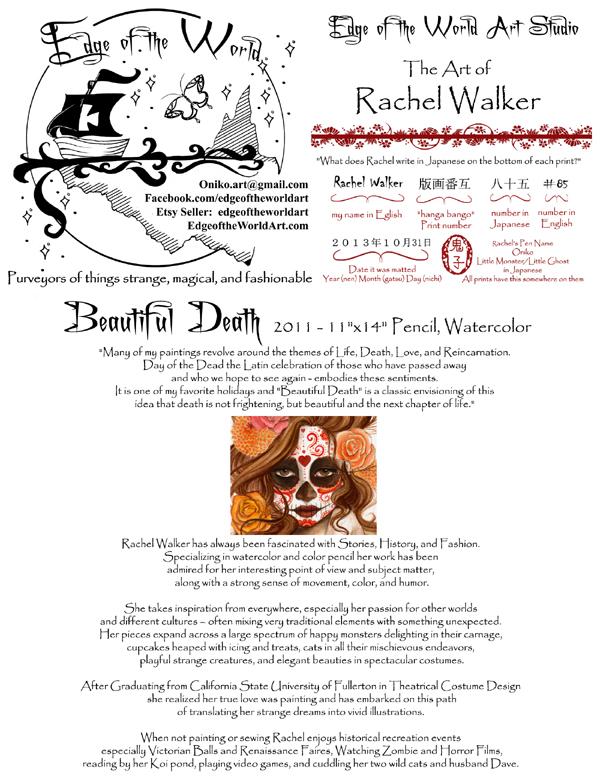 Edge of the World
Oniko.art@gmail.com
Facebook.com/edgeoftheworldart
Etsy Seller: edgeoftheworldart
EdgeoftheWorldArt.com
Purveyors of things strange, magical, and fashionable
Edge of the World Art Studio
The Art of
Rachel Walker
"What does Rachel write in Japanese on the bottom of each print?"
Rachel Walker 版画番互 八十五 #85
my name in Eglish "hanga bango" Print number number in Japanese number in English
2013年10月31日
Date it was matted
Year (nen) Month (gatsu) Day (nichi)
鬼子
Rachel's Pen Name
Oniko
Little Monster/Little Ghost
in Japanese
All prints have this somewhere on them
Beautiful Death 2011 - 11"x14" Pencil, Watercolor
"Many of my paintings revolve around the themes of Life, Death, Love, and Reincarnation.
Day of the Dead the Latin celebration of those who have passed away
and who we hope to see again - embodies these sentiments.
It is one of my favorite holidays and "Beautiful Death" is a classic envisioning of this
idea that death is not frightening, but beautiful and the next chapter of life."
Rachel Walker has always been fascinated with Stories, History, and Fashion.
Specializing in watercolor and color pencil her work has been
admired for her interesting point of view and subject matter,
along with a strong sense of movement, color, and humor.
She takes inspiration from everywhere, especially her passion for other worlds
and different cultures – often mixing very traditional elements with something unexpected.
Her pieces expand across a large spectrum of happy monsters delighting in their carnage,
cupcakes heaped with icing and treats, cats in all their mischievous endeavors,
playful strange creatures, and elegant beauties in spectacular costumes.
After Graduating from California State University of Fullerton in Theatrical Costume Design
she realized her true love was painting and has embarked on this path
of translating her strange dreams into vivid illustrations.
When not painting or sewing Rachel enjoys historical recreation events
especially Victorian Balls and Renaissance Faires, Watching Zombie and Horror Films,
reading by her Koi pond, playing video games, and cuddling her two wild cats and husband Dave.